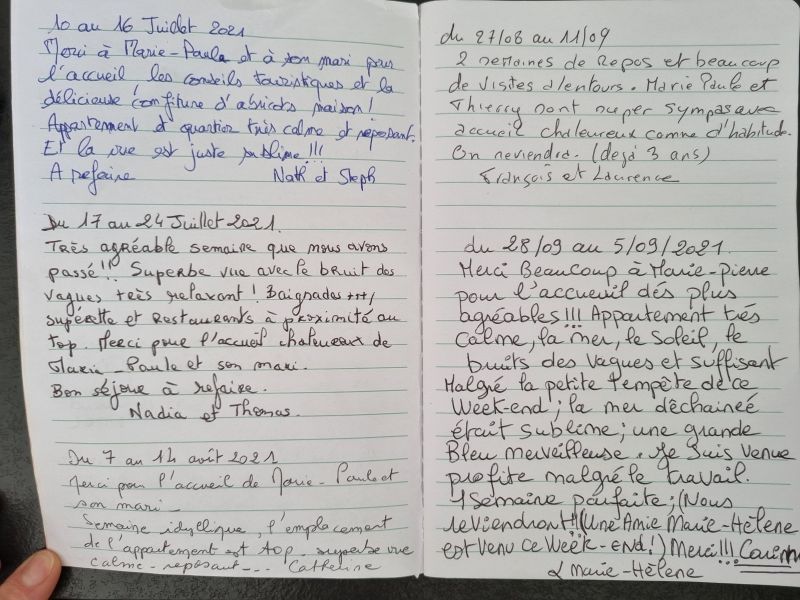 10 au 16 Juillet 2021
Merci à Marie-Paula et à son mari pour
l'accueil les conseils touristiques et la
délicieuse confiture d'abricots maison!
Appartement et quartier très calme et reposant.
Et la vue est juste sublime!!!
A refaire Nath et Steph
Du 17 au 24 Juillet 2021.
Très agréable semaine que nous avons
passé!! Superbe vue avec le bruit des
vagues très relaxant! Baignades +++/
supérette et Restaurants à proximité au
top. Merci pour l'accueil chaleureux de
Marie-Paule et son mari.
Bon séjour à refaire.
Nadia et Thomas.
Du 7 au 14 août 2021
Merci pour l'accueil de Marie-Paule et
son mari.
Semaine idyllique, l'emplacement
de l'appartement est top. superbe vue
calme - reposant... Catherine
du 27/08 au 11/09
2 semaines de Repos et beaucoup
de visites alentours. Marie Paule et
Thierry sont super sympas avec
accueil chaleureux comme d'habitude.
On reviendra. (dejà 3 ans)
François et Laurence
du 28/09 au 5/09/2021.
Merci Beaucoup à Marie-pierre
pour l'accueuil dés plus
agréables!!! Appartement trés
Calme, la mer, le Soleil, le
bruits des Vagues et suffisant
Malgré la petite tempête de ce
Week-end; la mer dêchaineé
était sublime; une grande
Bleu merveilleuse. Je Suis venue
profite malgré le travail.
1 Semaine parfaite; (Nous
reviendront!! (Une Amie Marie-Hèlene
est venu ce Week-END!) Merci!!! Corinne
& Marie-Hèlene